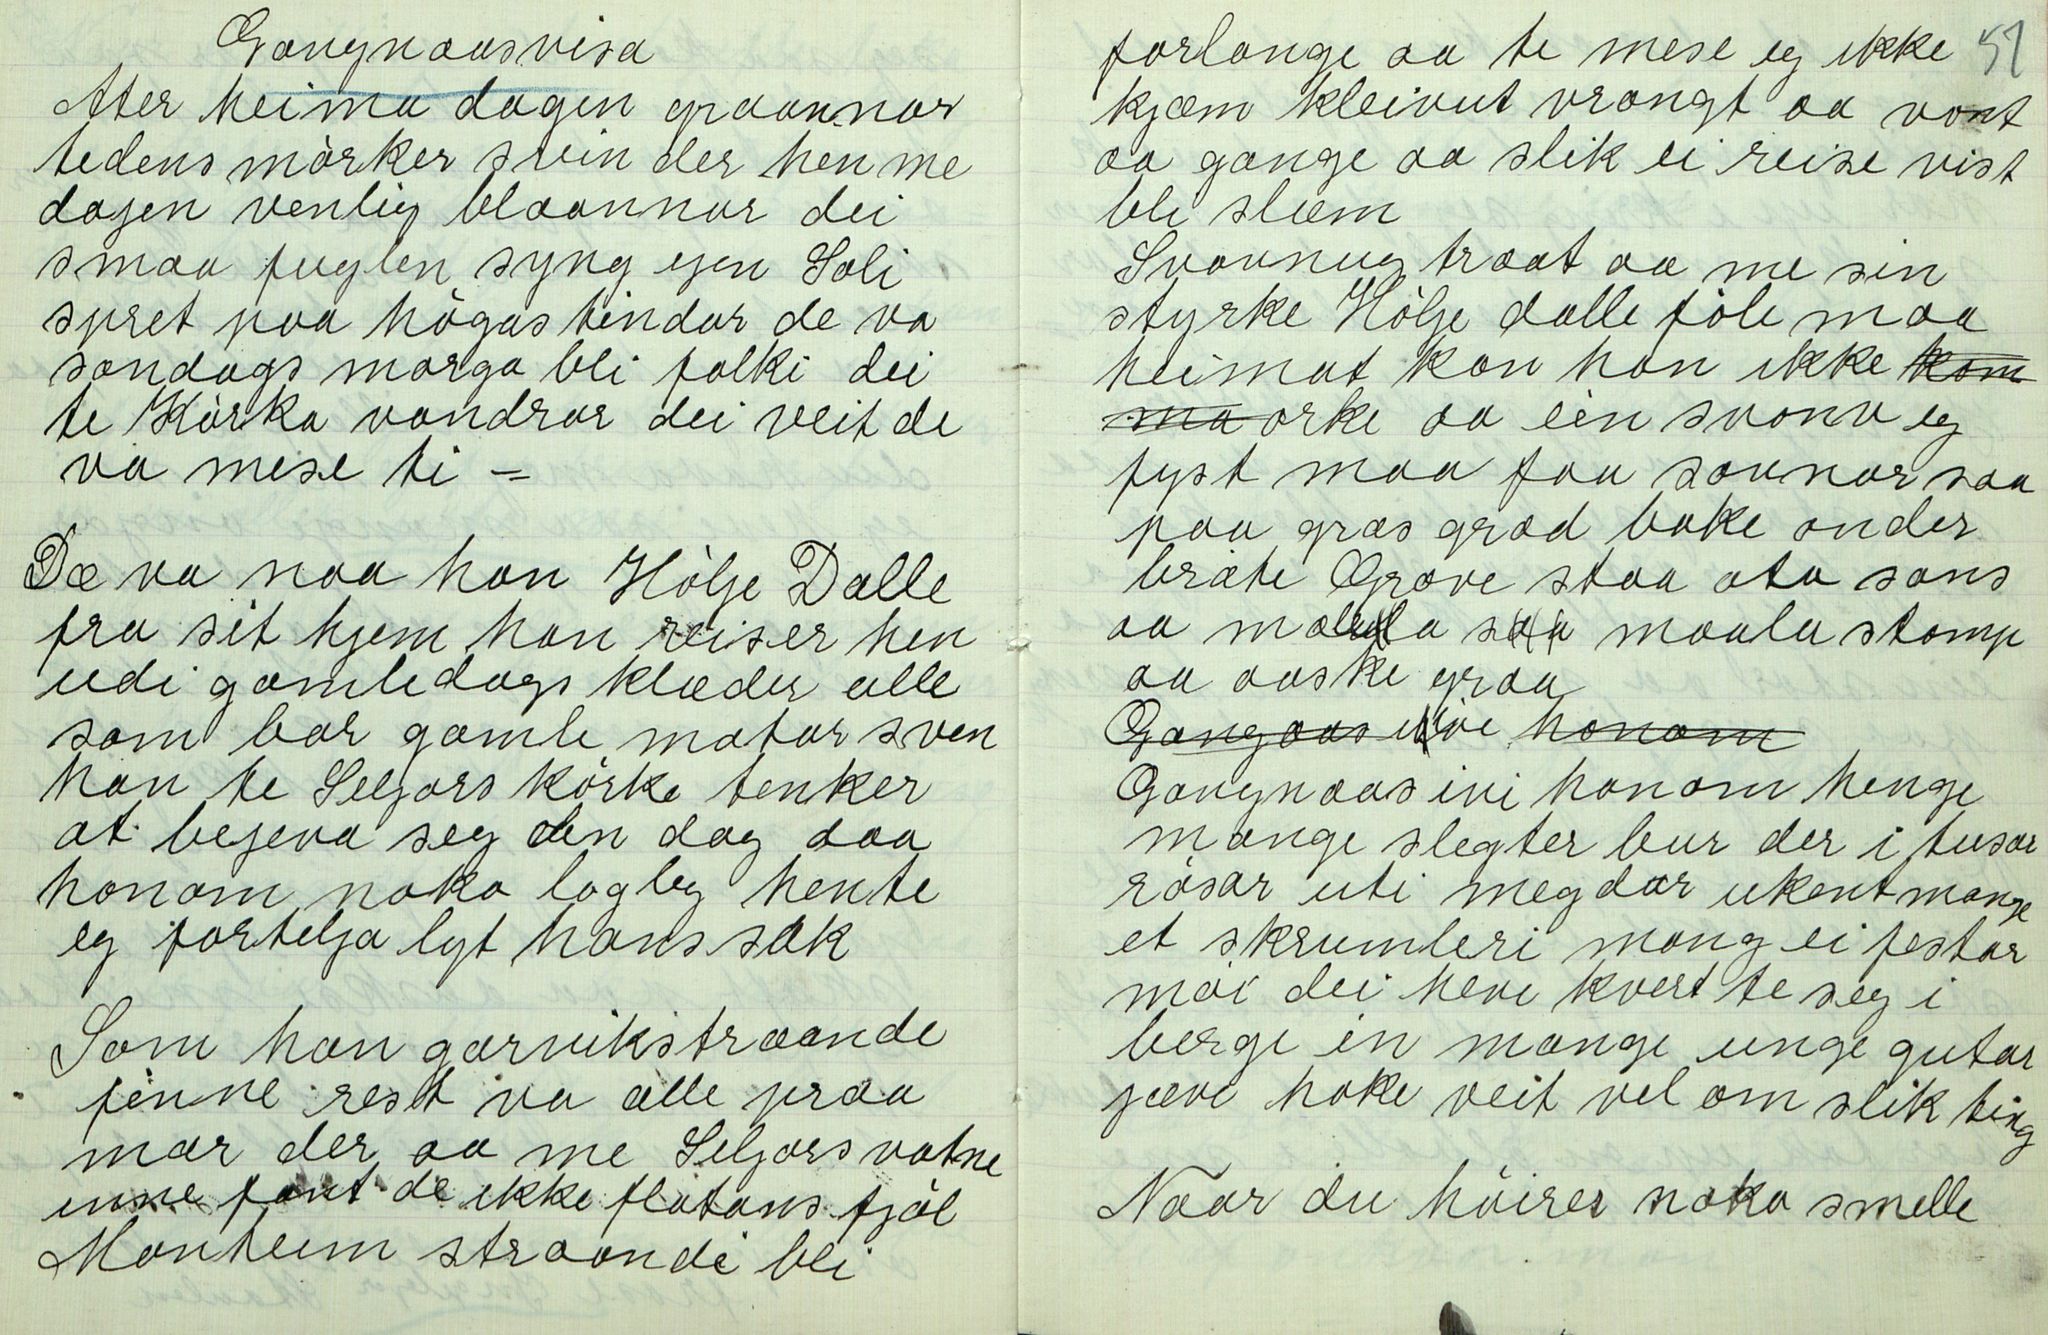 Gangnaasvisa
Ater heima dagen graannar
tedens mörker svin der hen me
dagen venlig blaannar dei
smaa fuglen syng igen Soli
spret paa högas tindar de va
sondags morga bli folki dei
te Körka vandrar dei veit de
va mese ti =
Dæ va naa han Hölje Dalle
fra sit hjem han reiser hen
udi gamledags klæder alle
som bar gamle matar sven
han te Seljors körke tenker
at begeva seg den dag daa
honom noko logleg hente
eg fortelja lyt hans sak
Som han garvikstraande
finne rest va alle praa
mar der aa me Seljors vatne
inne fant de ikke flatans fjöl
Manheim straandi bli
forlange aa te mese eg ikke 51
kjæm kleivut vrangt aa vont
aa gange aa slik ei reise vist
bli slæm
Svavnug traat aa me sin
styrke Hölje dalle föle maa
heimat kan han ikke kom
ma orke aa ein svonv eg
fyst maa faa sovnar saa
paa gras grod bake onder
brate Grove staa ata sons
aa maala stomp
aa aaske graa
Gangaas ive honom
Gangnaas ivi honom henge
mange slegter bur der i tusar
rösar uti megdar ukent mange
et skrumleri mang ei festar
möi dei heve kvert te seg i
berge in mange unge gutar
jæve hoke veit vel om slik ting
Naar du höirer noko smelle